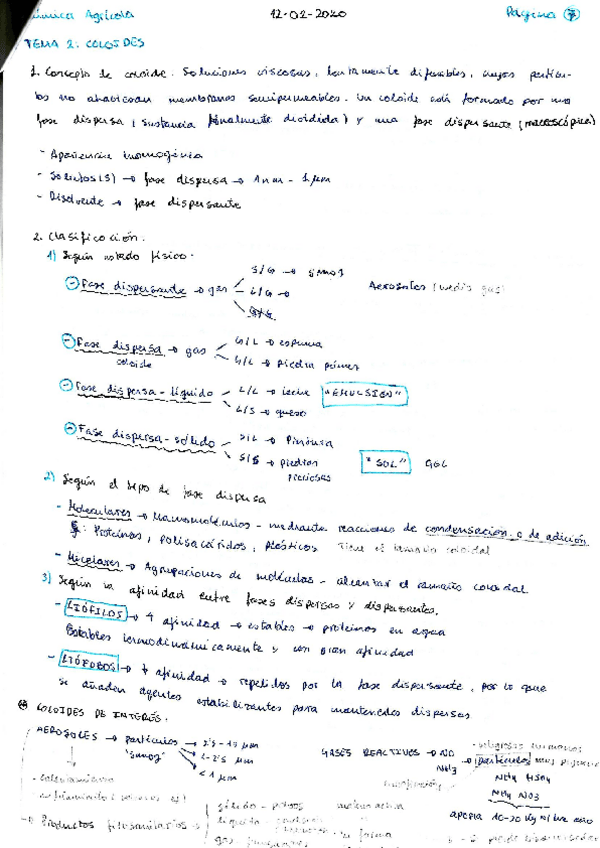 Química Agrícola 12-02-2020 Página 7
TEMA 2: COLOIDES
1. Concepto de coloide. Soluciones viscosas, lentamente difusibles, cuyas partícu-
las no atraviesan membranas semipermeables. Un coloide está formado por una
fase dispersa (sustancia finalmente dividida) y una fase dispersante (macroscópica)
- Apariencia homogénea
- Soluto(s) → fase dispersa → 1nm - 1μm
- Disolvente → fase dispersante
2. Clasificación.
1) Según estado físico.
- Fase dispersante → gas S/G → smog
L/G →
G/G
Aerosoles (medio gas)
- Fase dispersa → gas G/L → espuma
coloide G/S → piedra pómez
- Fase dispersa - líquido L/L → leche "EMULSIÓN"
L/S → queso
- Fase dispersa - sólido S/L → Pintura
S/S → piedras preciosas "SOL" GEL
2) Según el tipo de fase dispersa
- Moleculares → Macromoléculas - mediante reacciones de condensación o de adición
Ej: Proteínas, polisacáridos, plásticos Tiene el tamaño coloidal
- Micelares → Agrupaciones de moléculas - alcanzar el tamaño coloidal
3) Según la afinidad entre fases dispersas y dispersantes.
- LIÓFILOS → ↑ afinidad → estables → proteínas en agua
Estables termodinámicamente y con gran afinidad
- LIÓFOBOS → ↓ afinidad → repelidos por la fase dispersante, por lo que
se añaden agentes estabilizantes para mantenerlos dispersos
COLOIDES DE INTERÉS.
AEROSOLES → partículas 2'5-15 μm
"smog" 1-2'5 μm
< 1 μm
GASES REACTIVOS → NO
NH3
partículas muy
NH4 HSO4
NH4 NO3
- calentamiento
- enfriamiento
aporta 10-20 kg
→ Productos fitosanitarios
sólido - polvos
líquido
gas